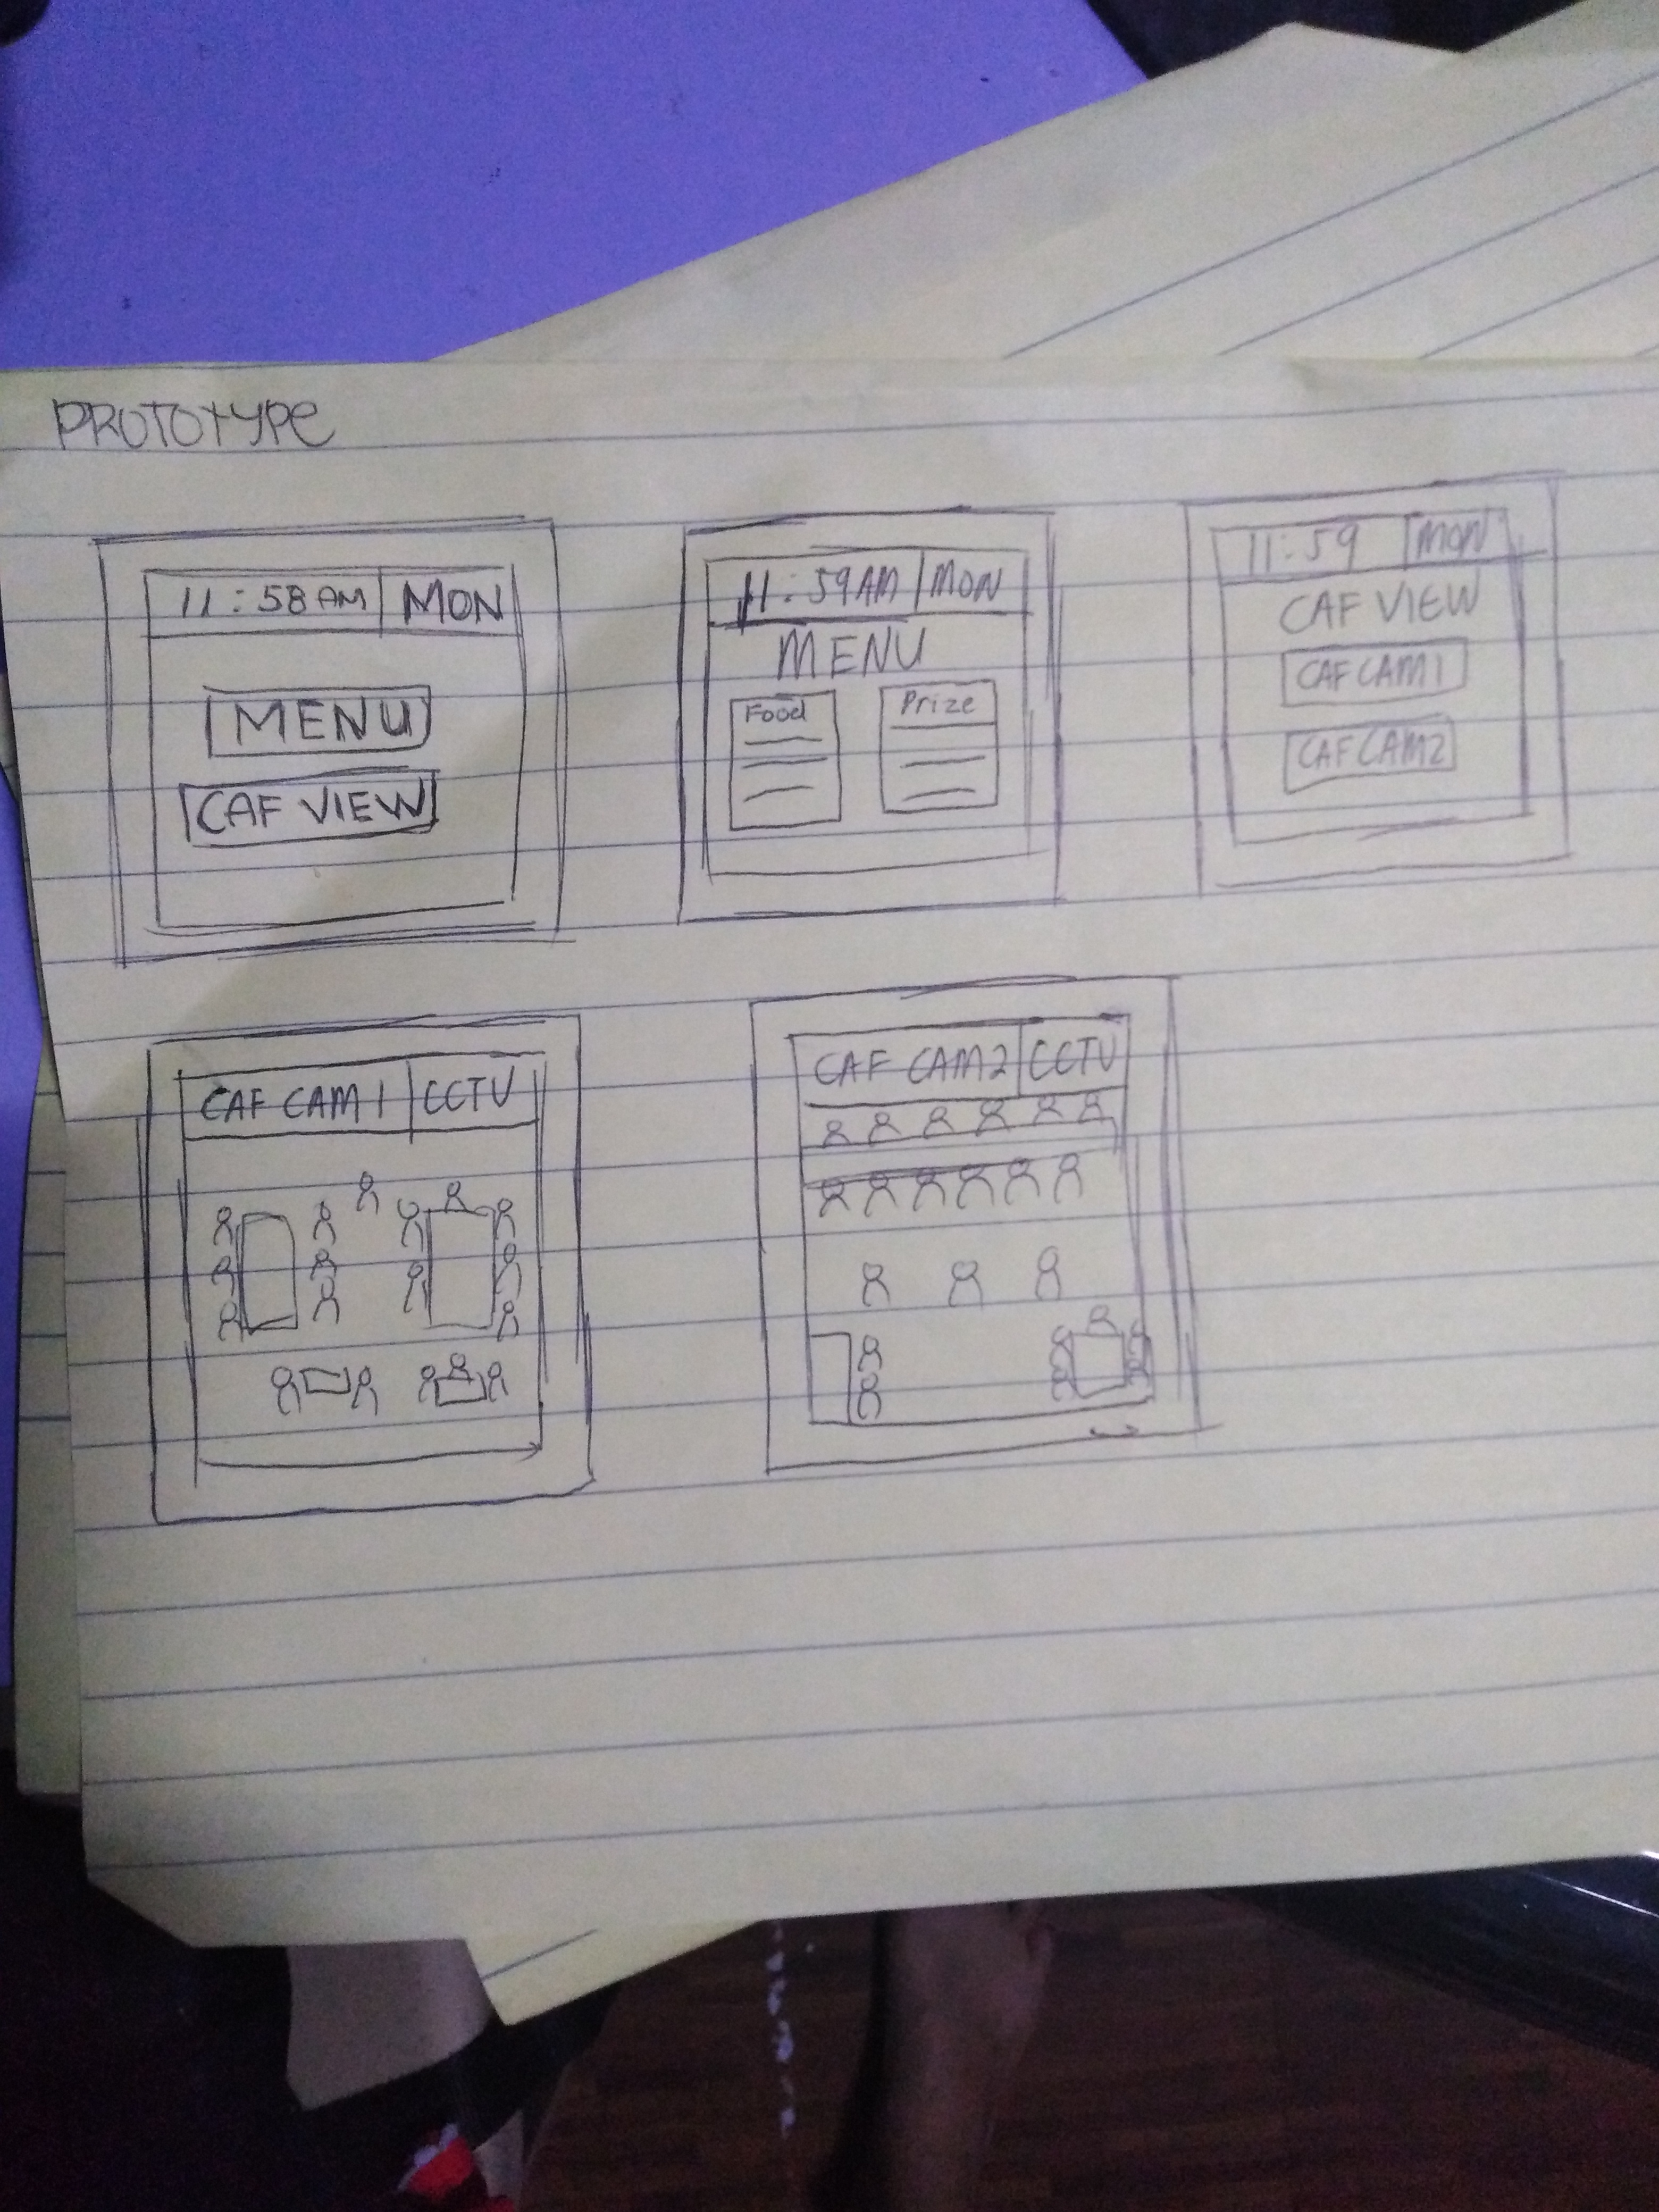 PROTOTYPE
11:58 AM MON
MENU
CAF VIEW
11:59AM MON
MENU
Food Prize
11:59 MON
CAF VIEW
CAF CAM1
CAF CAM2
CAF CAM 1 CCTV
CAF CAM2 CCTV